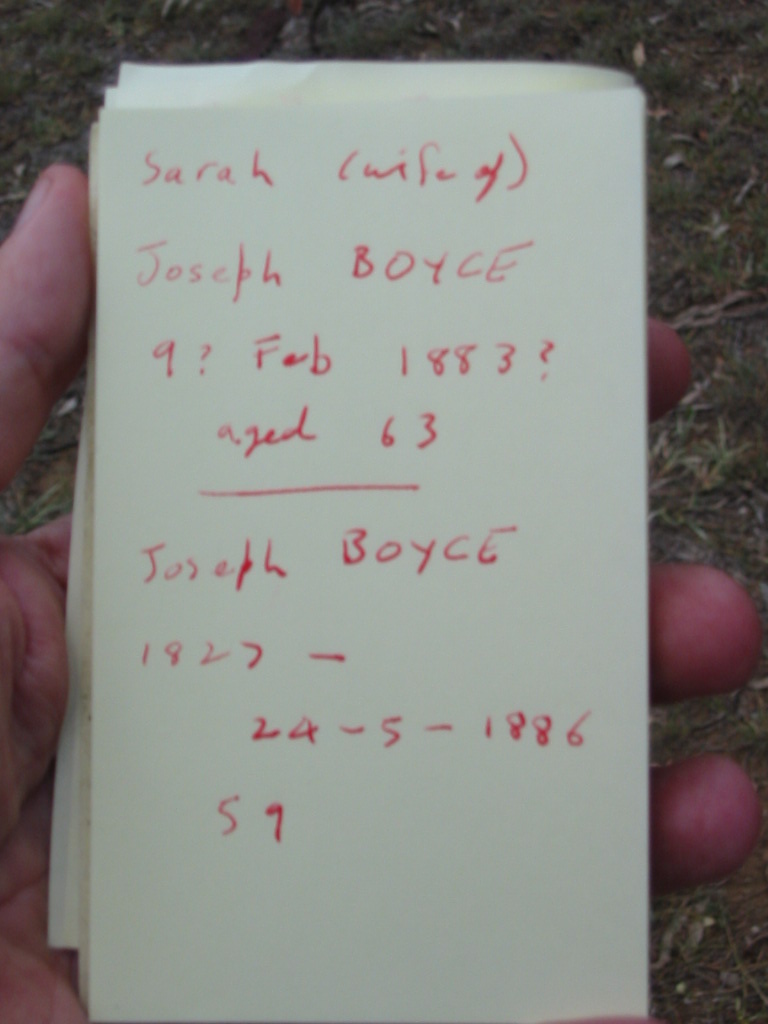 Sarah (wife of)
Joseph BOYCE
9? Feb 1883?
aged 63
Joseph BOYCE
1827 -
24-5-1886
59